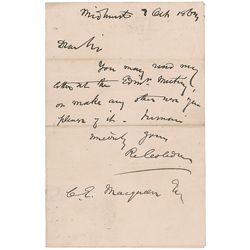 Midhurst 8 Oct 186
Dear Sir
You may read my
letter at the Edinr. Meeting
or make any other use you
please of it. I remain
sincerely yours
R Cobden
C. E. Macqueen Esq